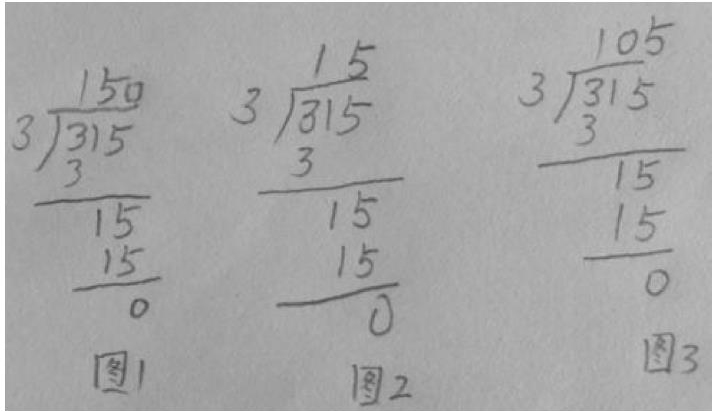 150
3 315
3
15
15
0
图1
15
3 315
3
15
15
0
图2
105
3 315
3
15
15
0
图3